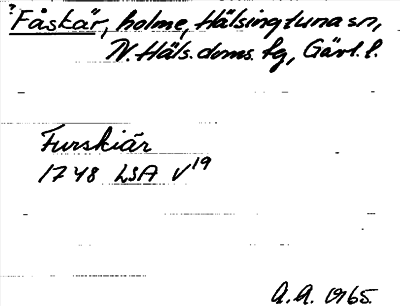 ? Fåskär, holme, Hälsingtuna sn,
N. Häls. doms. tg, Gävl. l.
Furskiär
1748 LSA V19
A.A. 1965.